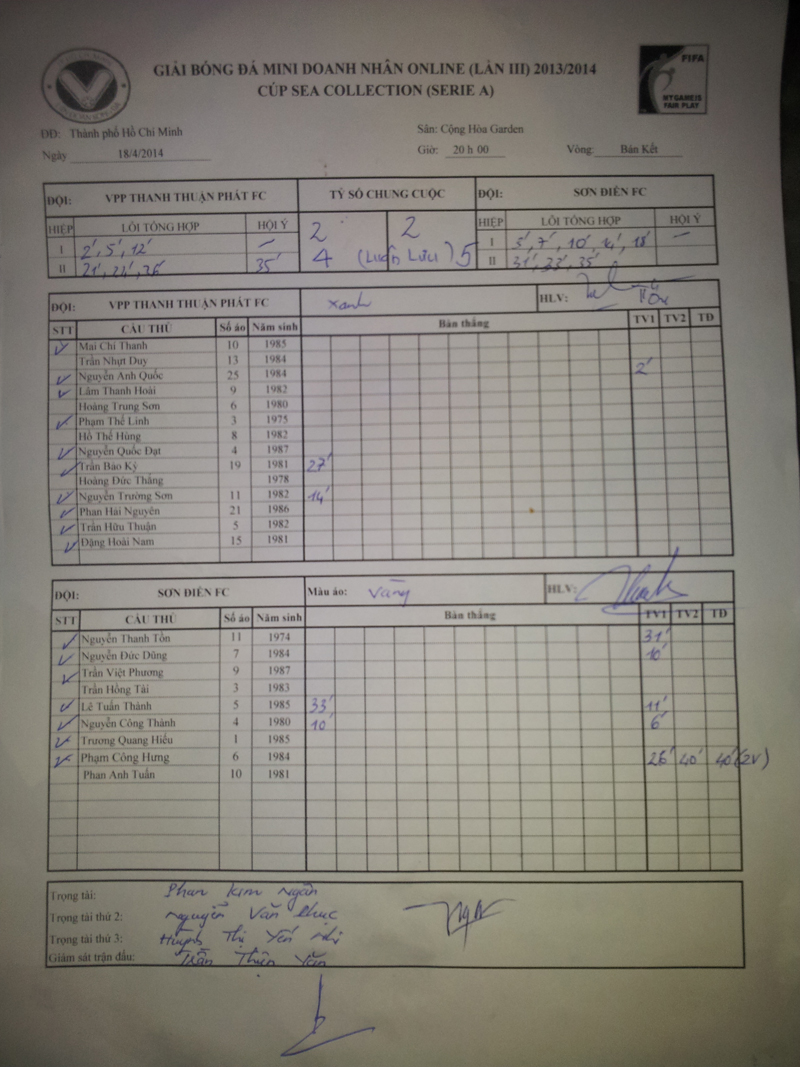 GIẢI BÓNG ĐÁ MINI DOANH NHÂN ONLINE (LẦN III) 2013/2014
CÚP SEA COLLECTION (SERIE A)
FIFA
MY GAME IS
FAIR PLAY
ĐĐ: Thành phố Hồ Chí Minh Sân: Cộng Hòa Garden
Ngày 18/4/2014 Giờ: 20 h 00 Vòng: Bán Kết
ĐỘI: VPP THANH THUẬN PHÁT FC TỶ SỐ CHUNG CUỘC ĐỘI: SƠN ĐIỀN FC
HIỆP LỖI TỔNG HỢP HỘI Ý 2 2 HIỆP LỖI TỔNG HỢP HỘI Ý
I 2', 5', 12' – I 3', 7', 10', 14', 18' –
II 21', 24', 26' 35' 4 (Luân Lưu) 5 II 31', 33', 35'
ĐỘI: VPP THANH THUẬN PHÁT FC xanh HLV:
STT CẦU THỦ Số áo Năm sinh Bàn thắng TV1 TV2 TĐ
Mai Chí Thanh 10 1985
Trần Nhựt Duy 13 1984
Nguyễn Anh Quốc 25 1984 2'
Lâm Thanh Hoài 9 1982
Hoàng Trung Sơn 6 1980
Phạm Thế Linh 3 1975
Hồ Thế Hùng 8 1982
Nguyễn Quốc Đạt 4 1987
Trần Bảo Kỳ 19 1981 27'
Hoàng Đức Thắng 1978
Nguyễn Trường Sơn 11 1982 14'
Phan Hải Nguyên 21 1986
Trần Hữu Thuận 5 1982
Đặng Hoài Nam 15 1981
ĐỘI: SƠN ĐIỀN FC Màu áo: Vàng HLV:
STT CẦU THỦ Số áo Năm sinh Bàn thắng TV1 TV2 TĐ
Nguyễn Thanh Tồn 11 1974 31'
Nguyễn Đức Dũng 7 1984 10'
Trần Việt Phương 9 1987
Trần Hồng Tài 3 1983
Lê Tuấn Thành 5 1985 33' 11'
Nguyễn Công Thành 4 1980 10' 6'
Trương Quang Hiếu 1 1985
Phạm Công Hưng 6 1984 26' 40' 40' (2V)
Phan Anh Tuấn 10 1981
Trọng tài: Phan Kim Ngân
Trọng tài thứ 2: Nguyễn Văn Phục
Trọng tài thứ 3: Huỳnh Thị Yến Nhi
Giám sát trận đấu: Trần Thiên Văn